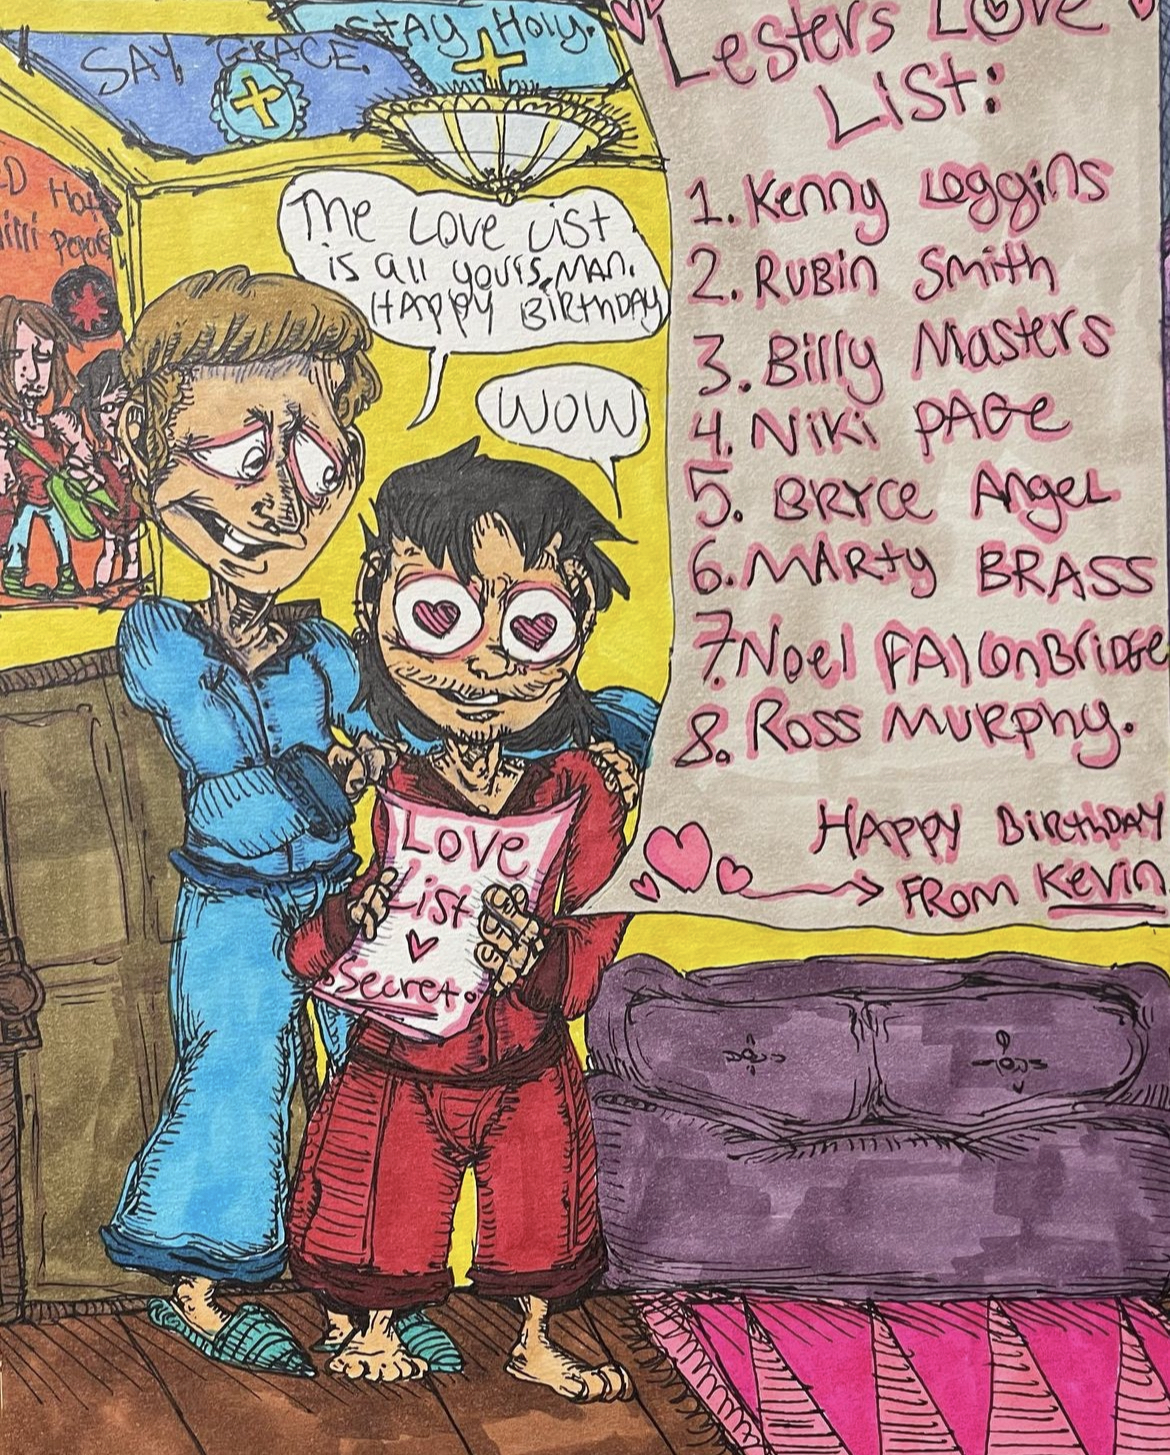 STAY Holy.
SAY GRACE.
D Hot
illi Pepers
The Love List
is all yours, MAN.
HAppy BirthDAy
WOW
Lesters Love
List:
1. Kenny Loggins
2. RuBin Smith
3. Billy Masters
4. Niki PAGe
5. BRYce Angel
6. MARty BRASS
7. Noel FAlconBriDGe
8. Ross MuRphy.
HAppy BirthDAY
FROM Kevin
Love
List
Secret.